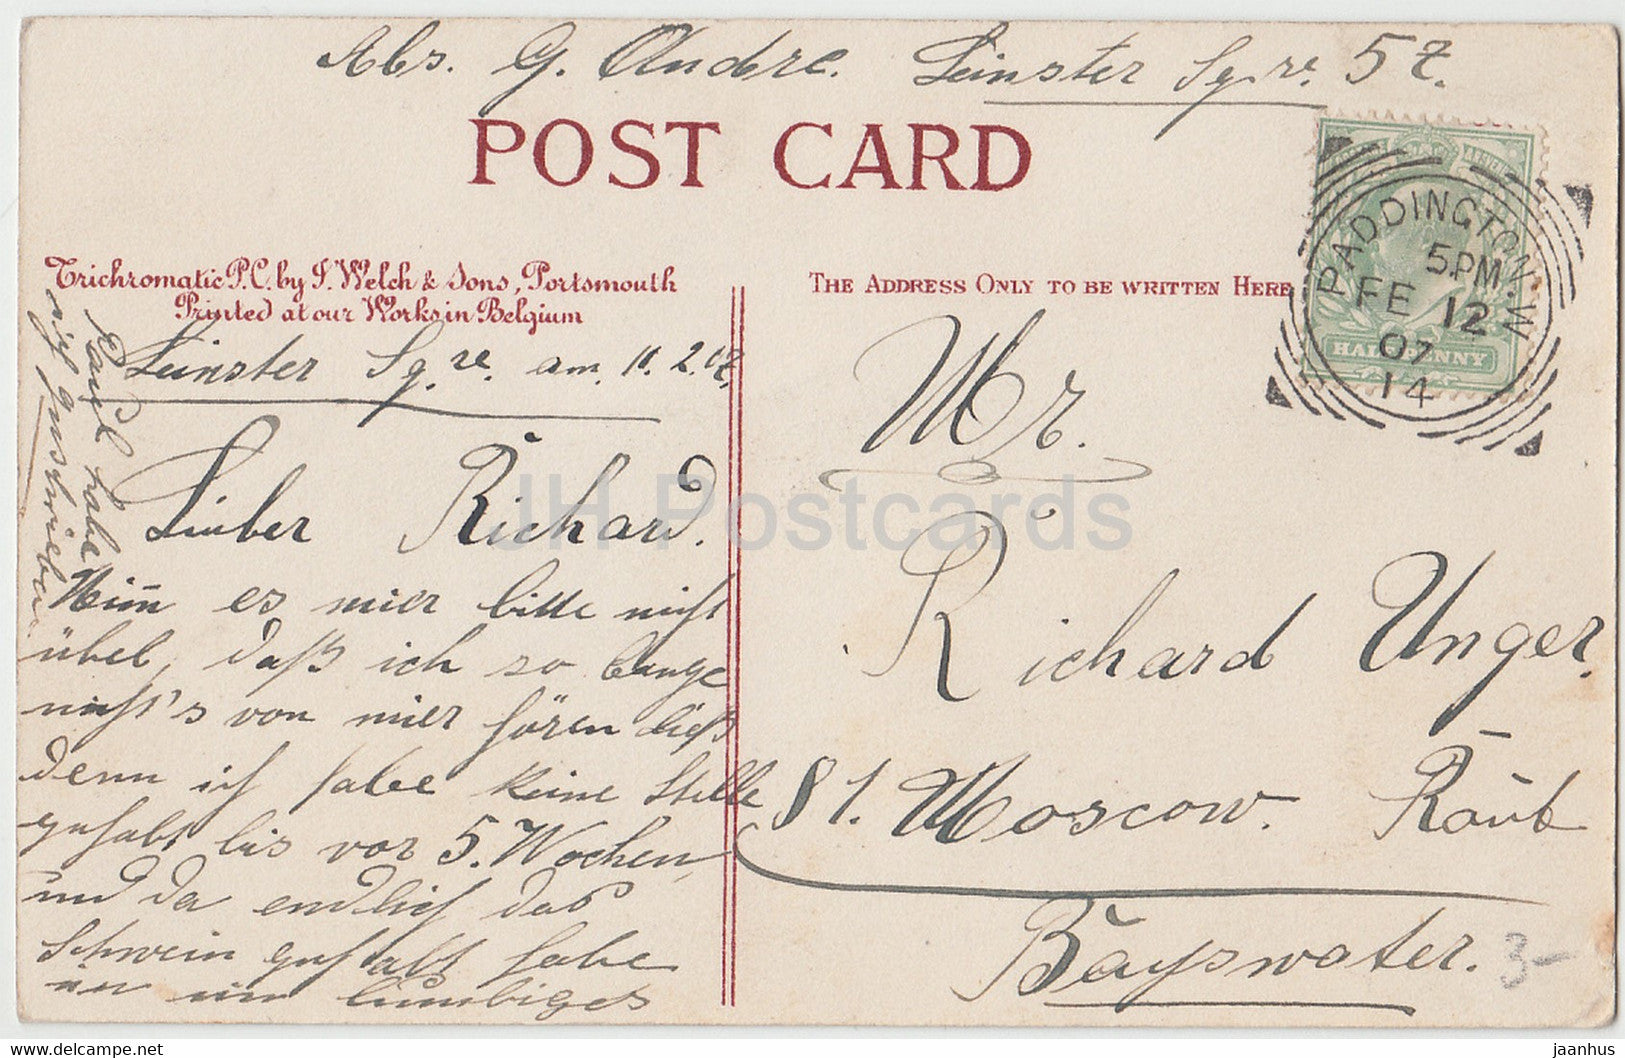 Abs. G. Andre. Leinster Sq.re. 57.
POST CARD
Trichromatic P.C. by J. Welch & Sons, Portsmouth
Printed at our Works in Belgium
THE ADDRESS ONLY TO BE WRITTEN HERE
PADDINGTON. W
5.PM
FE 12
07
14
HALFPENNY
Leinster Sq.re. am. 11. 2. 07.
Lieber Richard.
Nim̄ es mier bitte nicht
übel, daß ich so lange
nicht's von mier hören ließ
denn ich habe keine Stelle
gehabt bis vor 5. Wochen,
und da endlich das
Schwein gehabt habe
in ein lumbiges
habe
Mr.
Richard Unger.
81. Moscow. Road
Bayswater.
3-
JH Postcards
akpool.co.uk